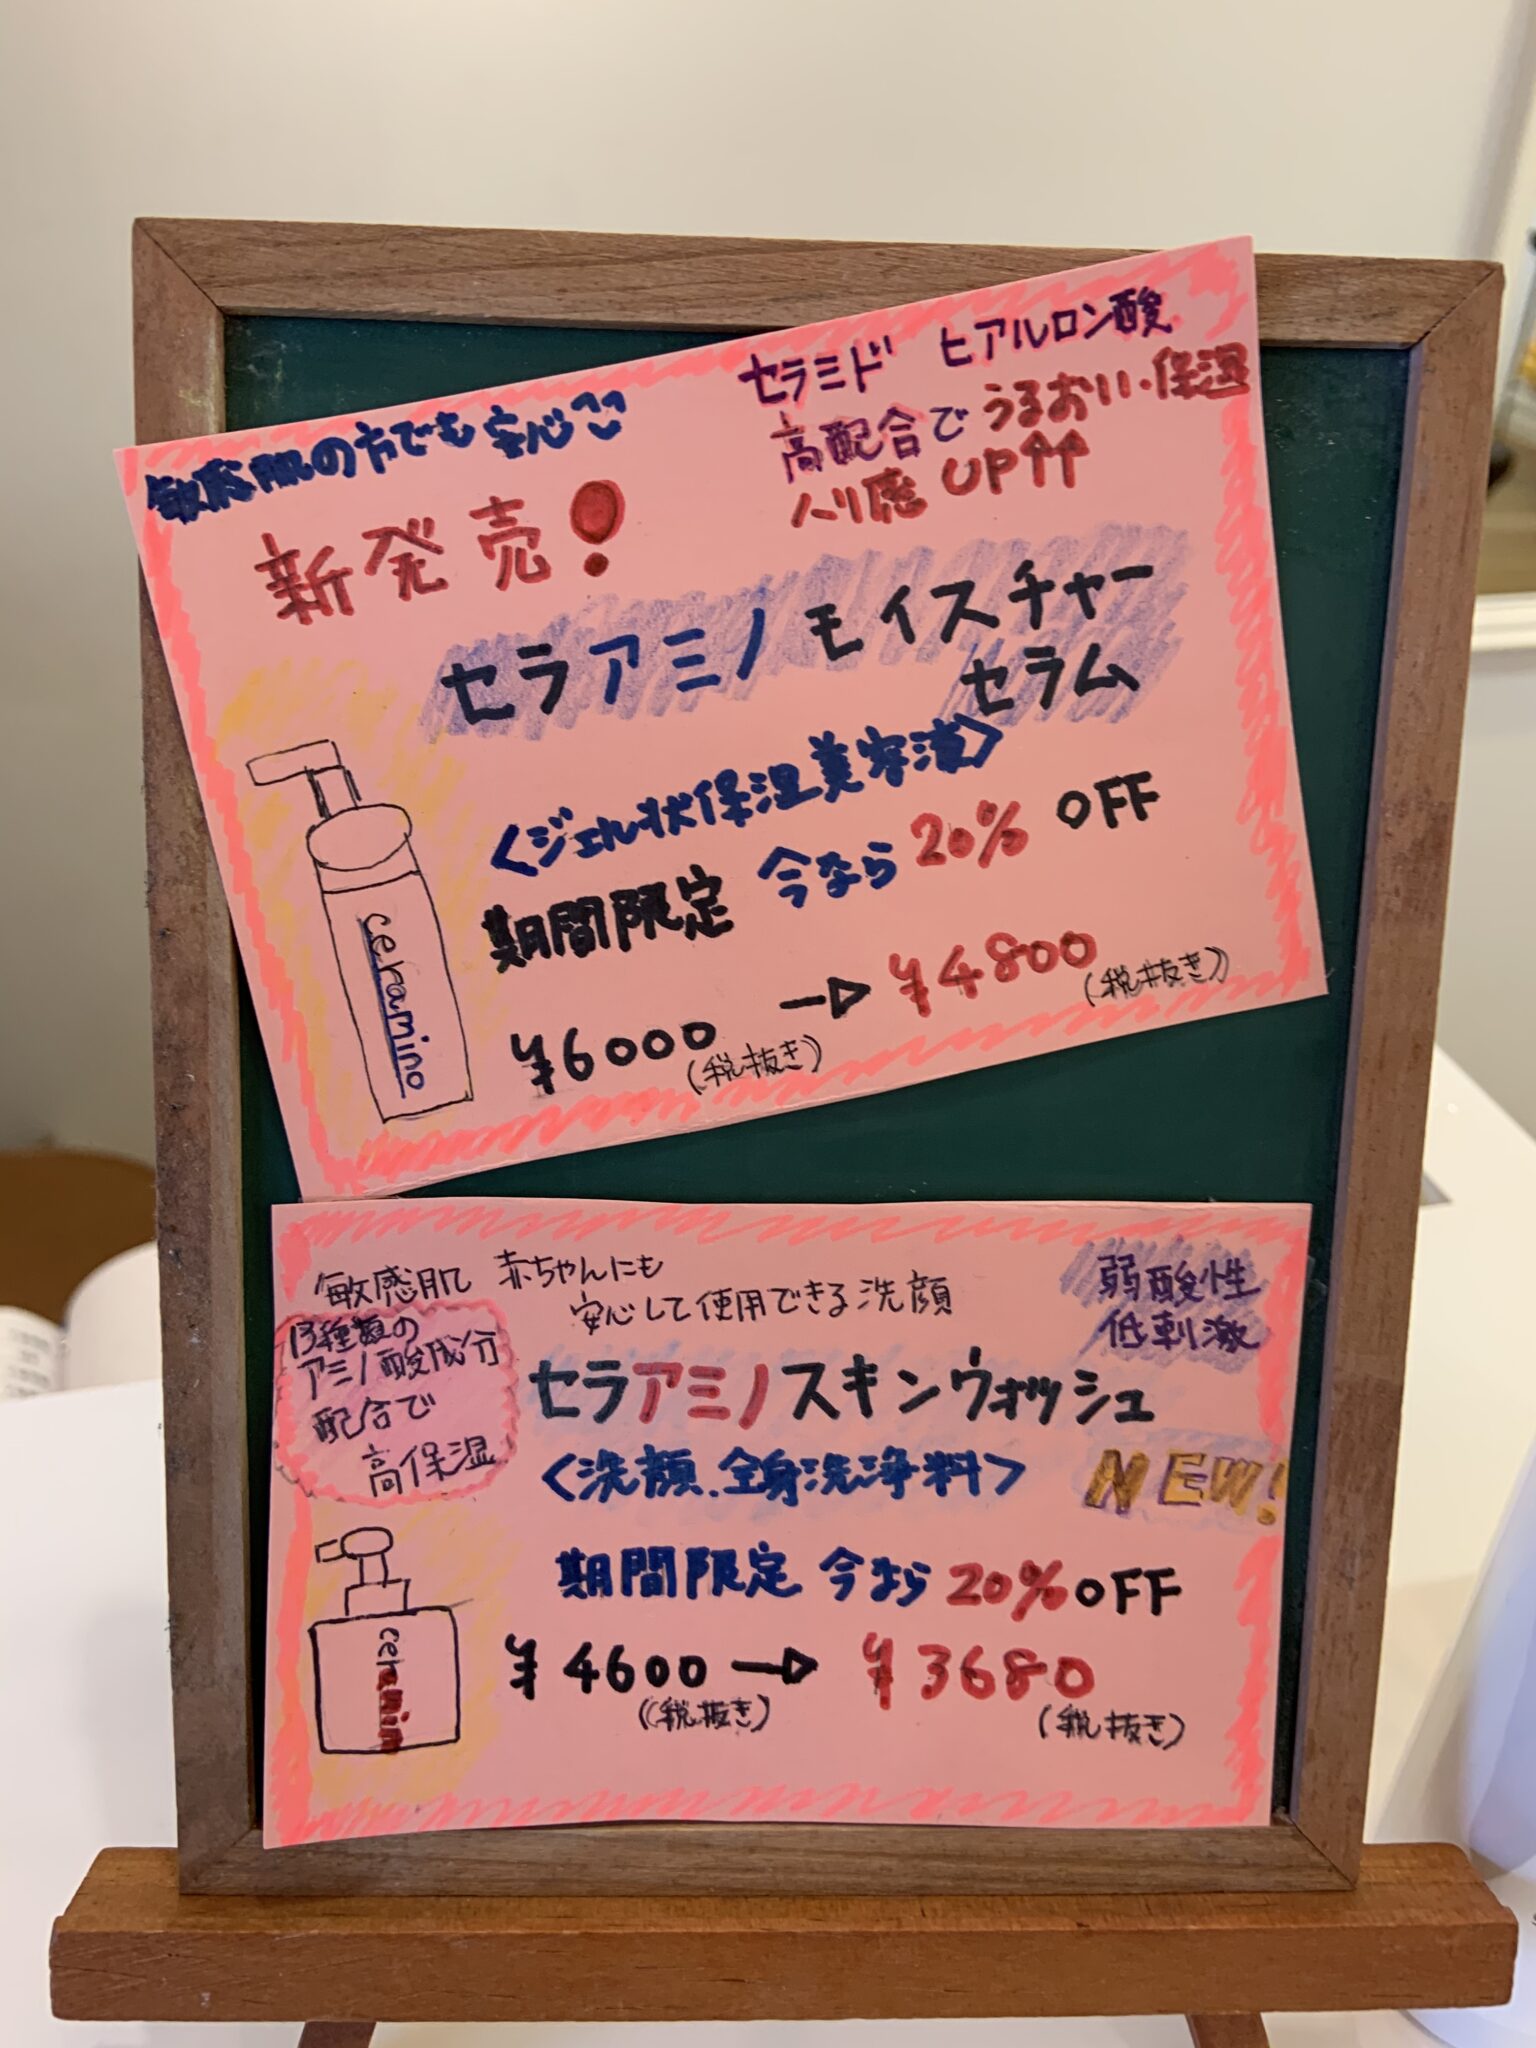 敏感肌の方でも安心
セラミド ヒアルロン酸
高配合でうるおい・保湿
ハリ感 UP↑↑
新発売!
セラアミノモイスチャー
セラム
<ジェル状保湿美容液>
期間限定 今なら20% OFF
¥6000 → ¥4800
(税抜き) (税抜き)
ceramino
敏感肌 赤ちゃんにも
安心して使用できる洗顔
弱酸性
低刺激
13種類の
アミノ酸成分
配合で
高保湿
セラアミノスキンウォッシュ
<洗顔.全身洗浄料>
NEW!
期間限定 今なら20%OFF
¥4600→¥3680
(税抜き) (税抜き)